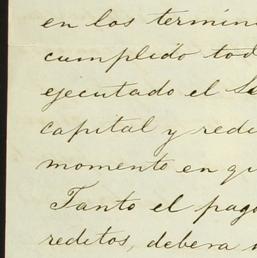 en los términ
cumplido tod
ejecutado el S
capital y redi
momento en qu
Tanto el pago
reditos, debera